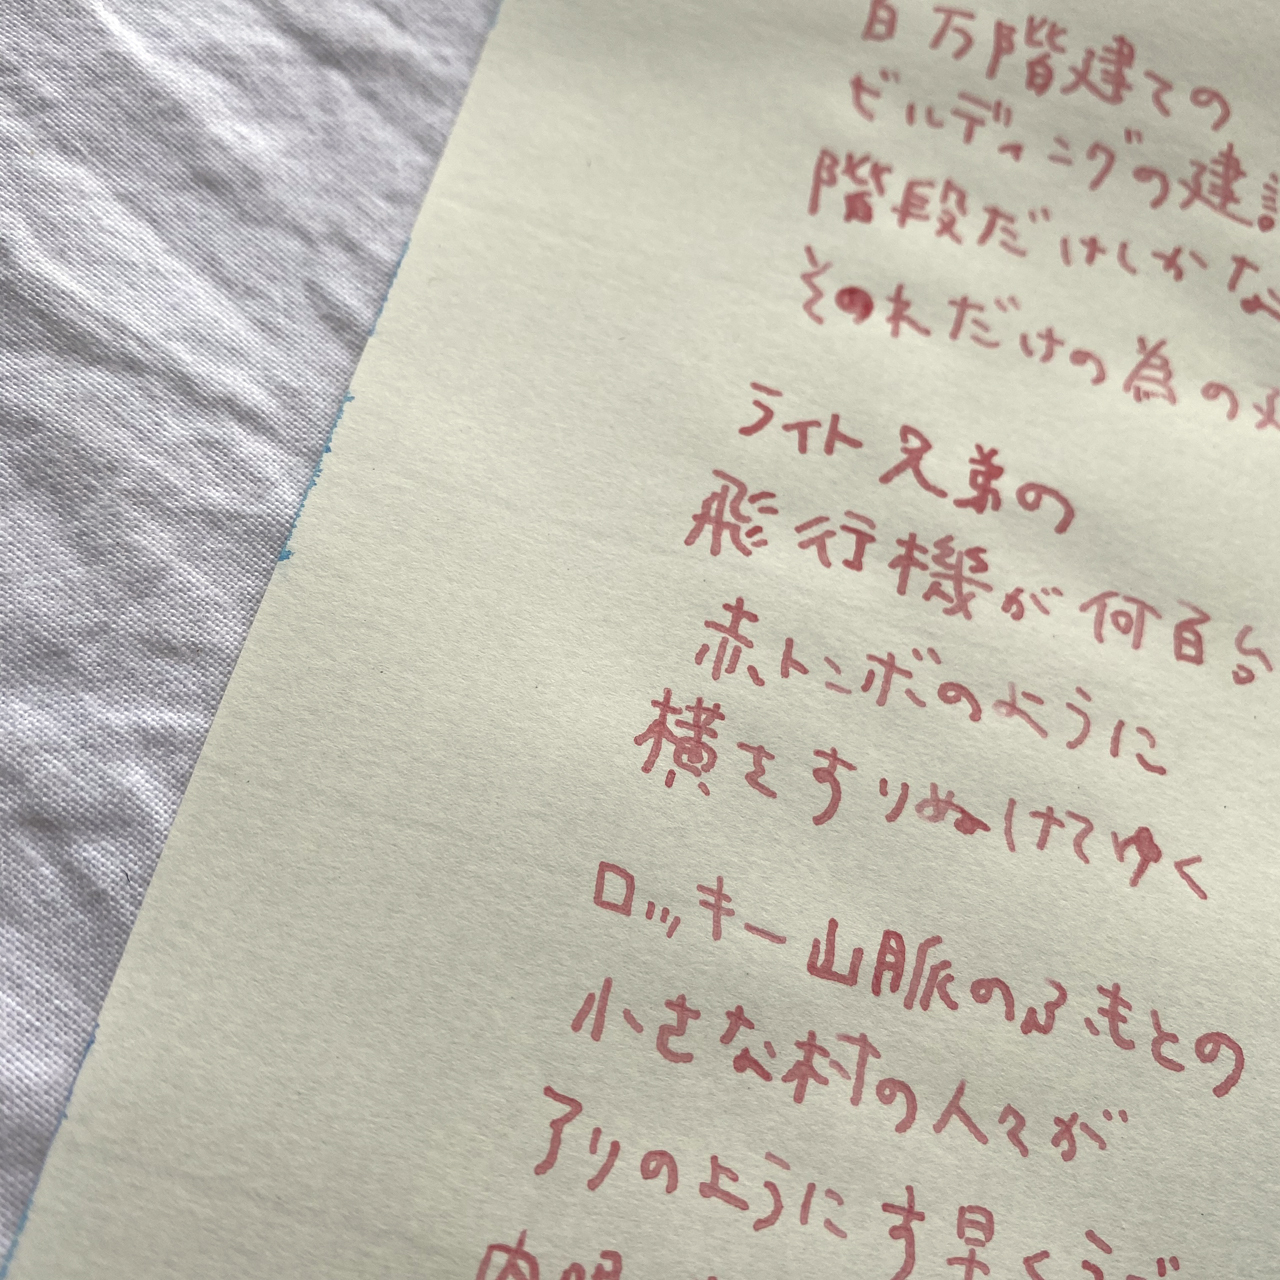 百万階建ての
ビルディングの建設
階段だけしかな
それだけの為の
ライト兄弟の
飛行機が何百台
赤トンボのように
横をすりぬけてゆく
ロッキー山脈のふもとの
小さな村の人々が
アリのように す早く